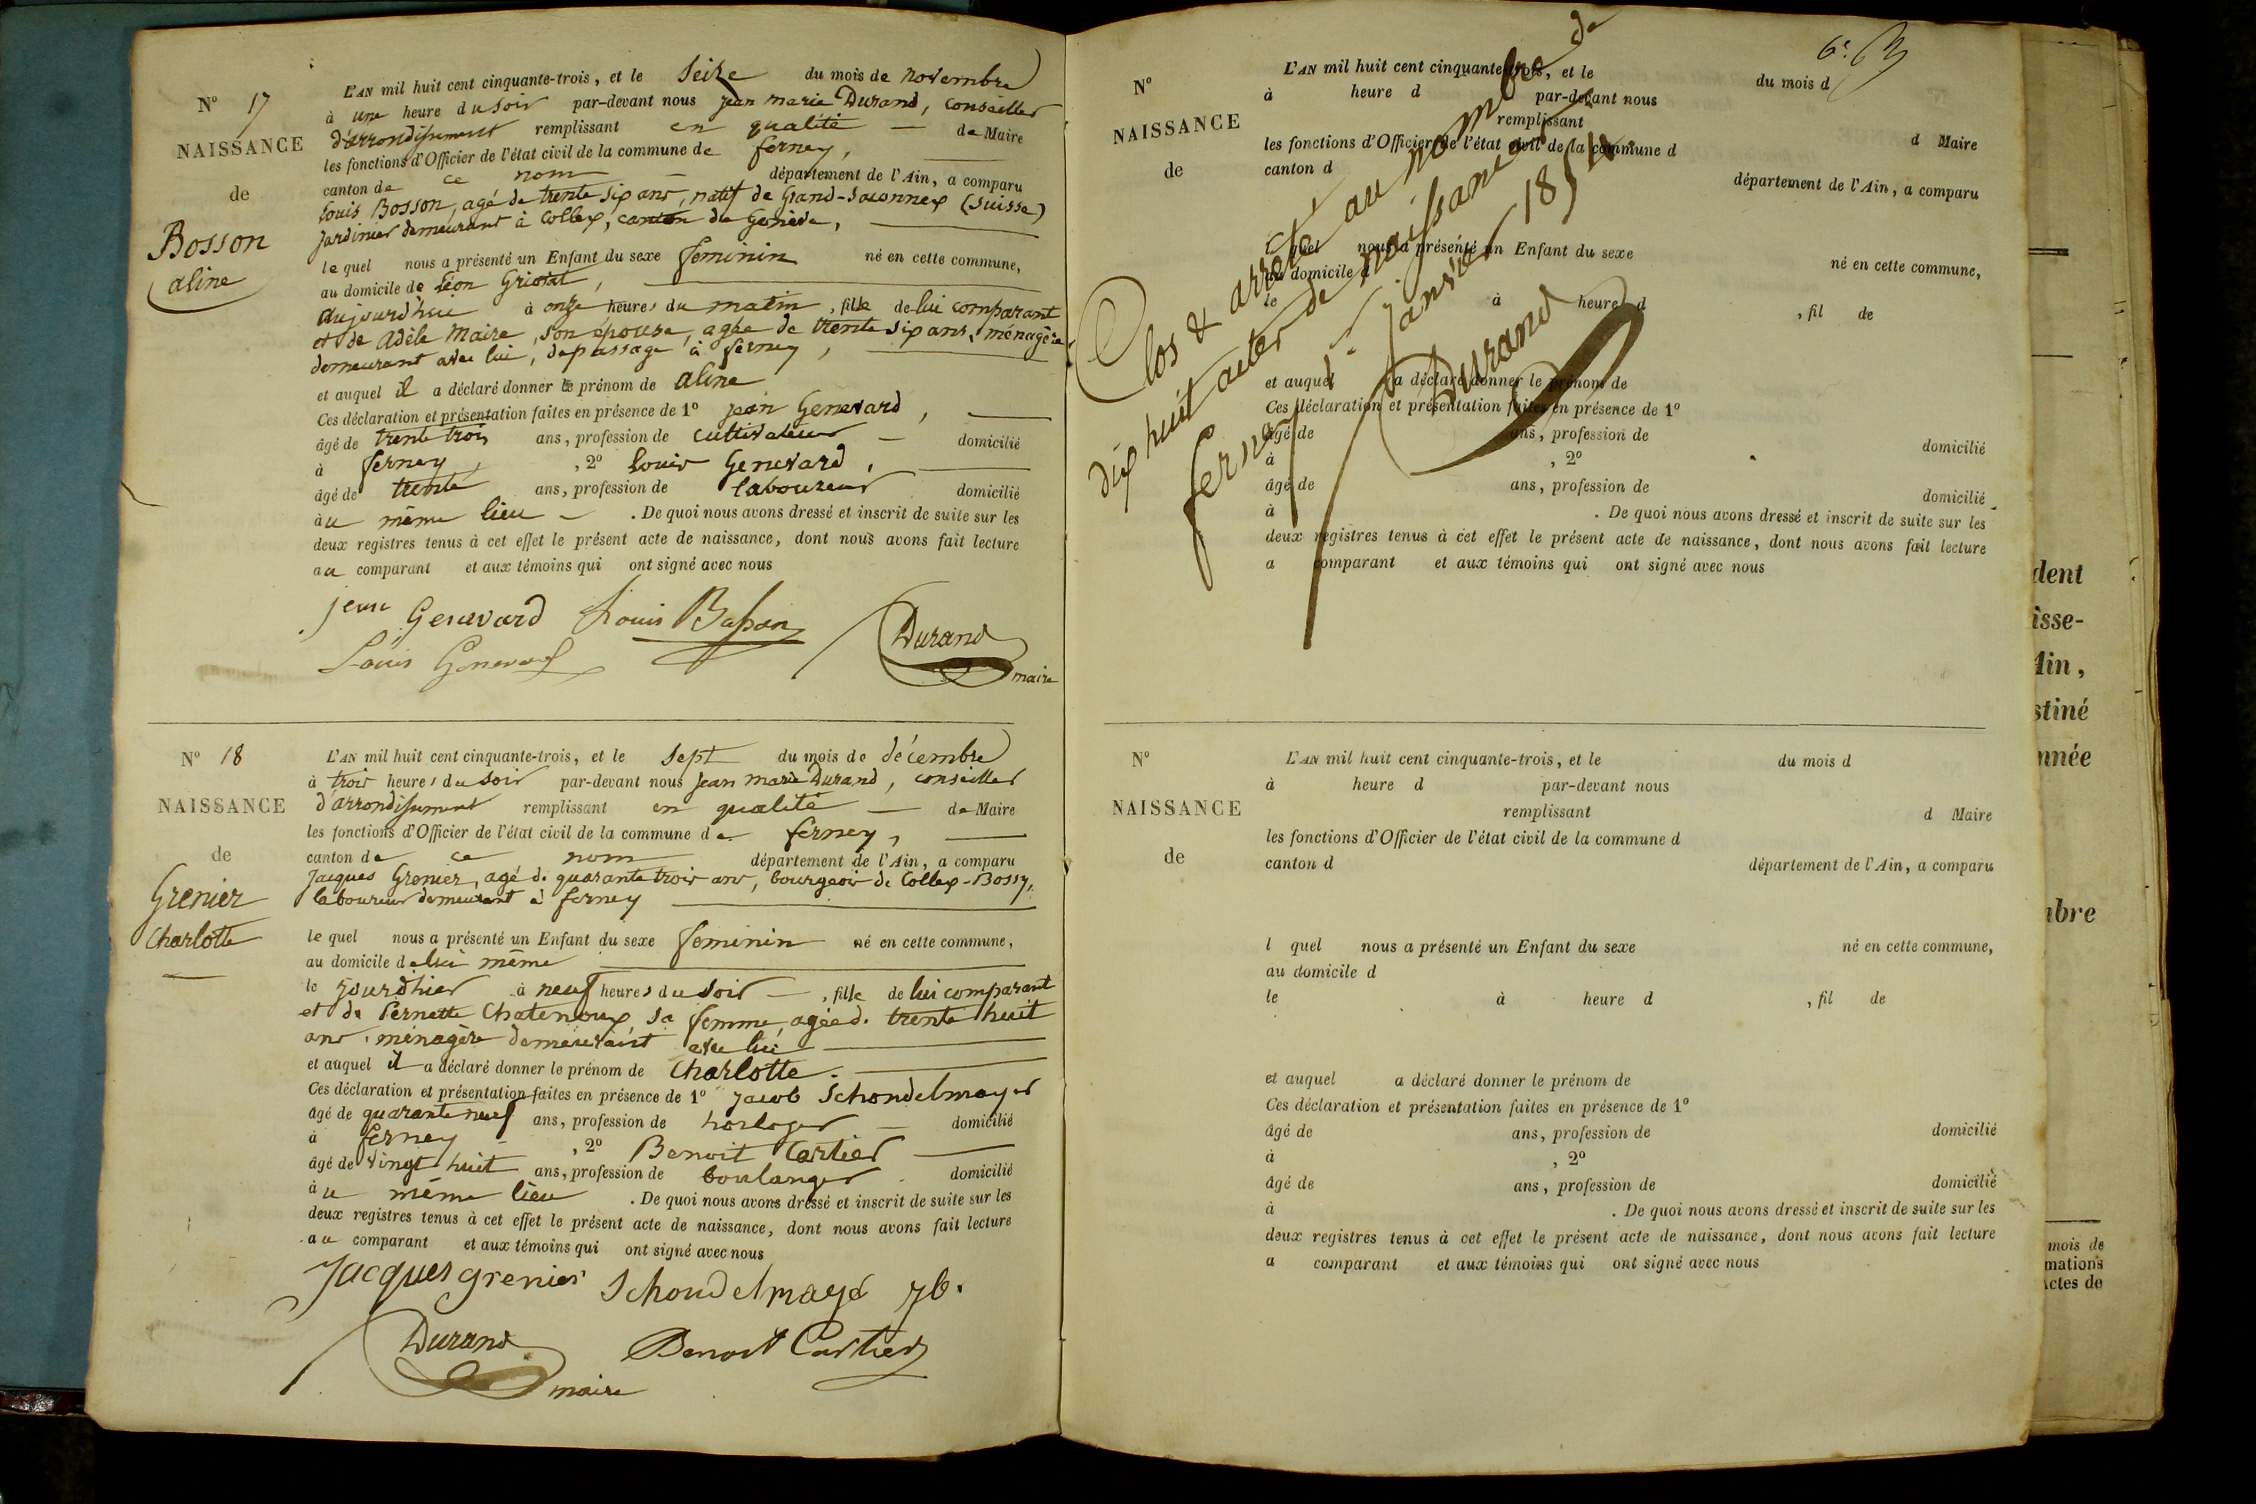 N° 17
NAISSANCE
de
Bosson
aline
L'AN mil huit cent cinquante-trois, et le Seize du mois de novembre
à une heure du soir par-devant nous jean marie Durand, Conseiller
d'arrondissement remplissant en qualité — de Maire
les fonctions d'Officier de l'état civil de la commune de ferney,
canton de ce nom département de l'Ain, a comparu
Louis Bosson, agé de trente six ans, natif de Grand-Saconnex (Suisse)
jardinier demeurant à Collex, canton de Genève,
le quel nous a présenté un Enfant du sexe feminin né en cette commune,
au domicile de léon
aujourd'hui à onze heures du matin, fille de lui comparant
et de Adèle Maire, son épouse, agée de trente six ans, ménagère
demeurant avec lui, de passage à ferney,
et auquel il a déclaré donner le prénom de aline
Ces déclaration et présentation faites en présence de 1° jean Genevard,
âgé de trente trois ans, profession de cultivateur — domicilié
à ferney, , 2° Louis Genevard,
âgé de trente ans, profession de laboureur domicilié
au même lieu — . De quoi nous avons dressé et inscrit de suite sur les
deux registres tenus à cet effet le présent acte de naissance, dont nous avons fait lecture
au comparant et aux témoins qui ont signé avec nous
jean Genevard Louis Bosson
Louis Genevard Durand
maire
N° 18
NAISSANCE
de
Grenier
Charlotte
L'AN mil huit cent cinquante-trois, et le Sept du mois de décembre
à trois heures du soir par-devant nous jean marie Durand, conseiller
d'arrondissement remplissant en qualité — de Maire
les fonctions d'Officier de l'état civil de la commune de ferney,
canton de ce nom département de l'Ain, a comparu
Jacques Grenier, agé de quarante trois ans, bourgeois de Collex-Bossy,
laboureur demeurant à ferney
le quel nous a présenté un Enfant du sexe feminin né en cette commune,
au domicile de lui même
le jour d'hier à neuf heures du soir —, fille de lui comparant
et de Pernette Chatenoux, sa femme, agée de trente huit
ans, ménagère demeurant avec lui
et auquel il a déclaré donner le prénom de Charlotte.
Ces déclaration et présentation faites en présence de 1° Jacob Schondelmayer
âgé de quarante neuf ans, profession de horloger — domicilié
à ferney — , 2° Benoit Cartier
âgé de vingt huit ans, profession de boulanger domicilié
au même lieu . De quoi nous avons dressé et inscrit de suite sur les
deux registres tenus à cet effet le présent acte de naissance, dont nous avons fait lecture
au comparant et aux témoins qui ont signé avec nous
Jacques grenier Schondelmayer jb.
Durand Benoit Cartier
maire
N°
NAISSANCE
de
L'AN mil huit cent cinquante-trois, et le du mois d
à heure d par-devant nous
remplissant d Maire
les fonctions d'Officier de l'état civil de la commune d
canton d département de l'Ain, a comparu
l quel nous a présenté un Enfant du sexe né en cette commune,
au domicile d
le à heure d , fil de
et auquel a déclaré donner le prénom de
Ces déclaration et présentation faites en présence de 1°
âgé de ans, profession de domicilié
à , 2°
âgé de ans, profession de domicilié
à . De quoi nous avons dressé et inscrit de suite sur les
deux registres tenus à cet effet le présent acte de naissance, dont nous avons fait lecture
a comparant et aux témoins qui ont signé avec nous
Clos & arrêté au nombre de
dix huit actes de naissances
ferney 1er janvier 1854
Durand
N°
NAISSANCE
de
L'AN mil huit cent cinquante-trois, et le du mois d
à heure d par-devant nous
remplissant d Maire
les fonctions d'Officier de l'état civil de la commune d
canton d département de l'Ain, a comparu
l quel nous a présenté un Enfant du sexe né en cette commune,
au domicile d
le à heure d , fil de
et auquel a déclaré donner le prénom de
Ces déclaration et présentation faites en présence de 1°
âgé de ans, profession de domicilié
à , 2°
âgé de ans, profession de domicilié
à . De quoi nous avons dressé et inscrit de suite sur les
deux registres tenus à cet effet le présent acte de naissance, dont nous avons fait lecture
a comparant et aux témoins qui ont signé avec nous
dent
isse-
Ain,
stiné
nnée
mbre
mois de
mations
Actes de